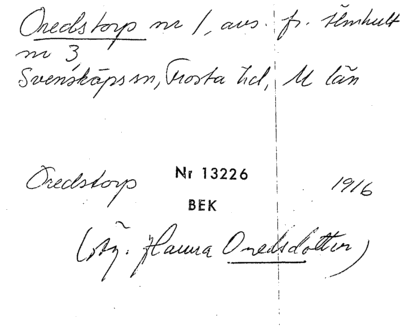 Onedstorp nr 1, avs. fr. Elmhult
nr 3
Svensköps sn, Frosta hd, M län
Onedstorp Nr 13226 1916
BEK
(äg. Hanna Onedsdotter)